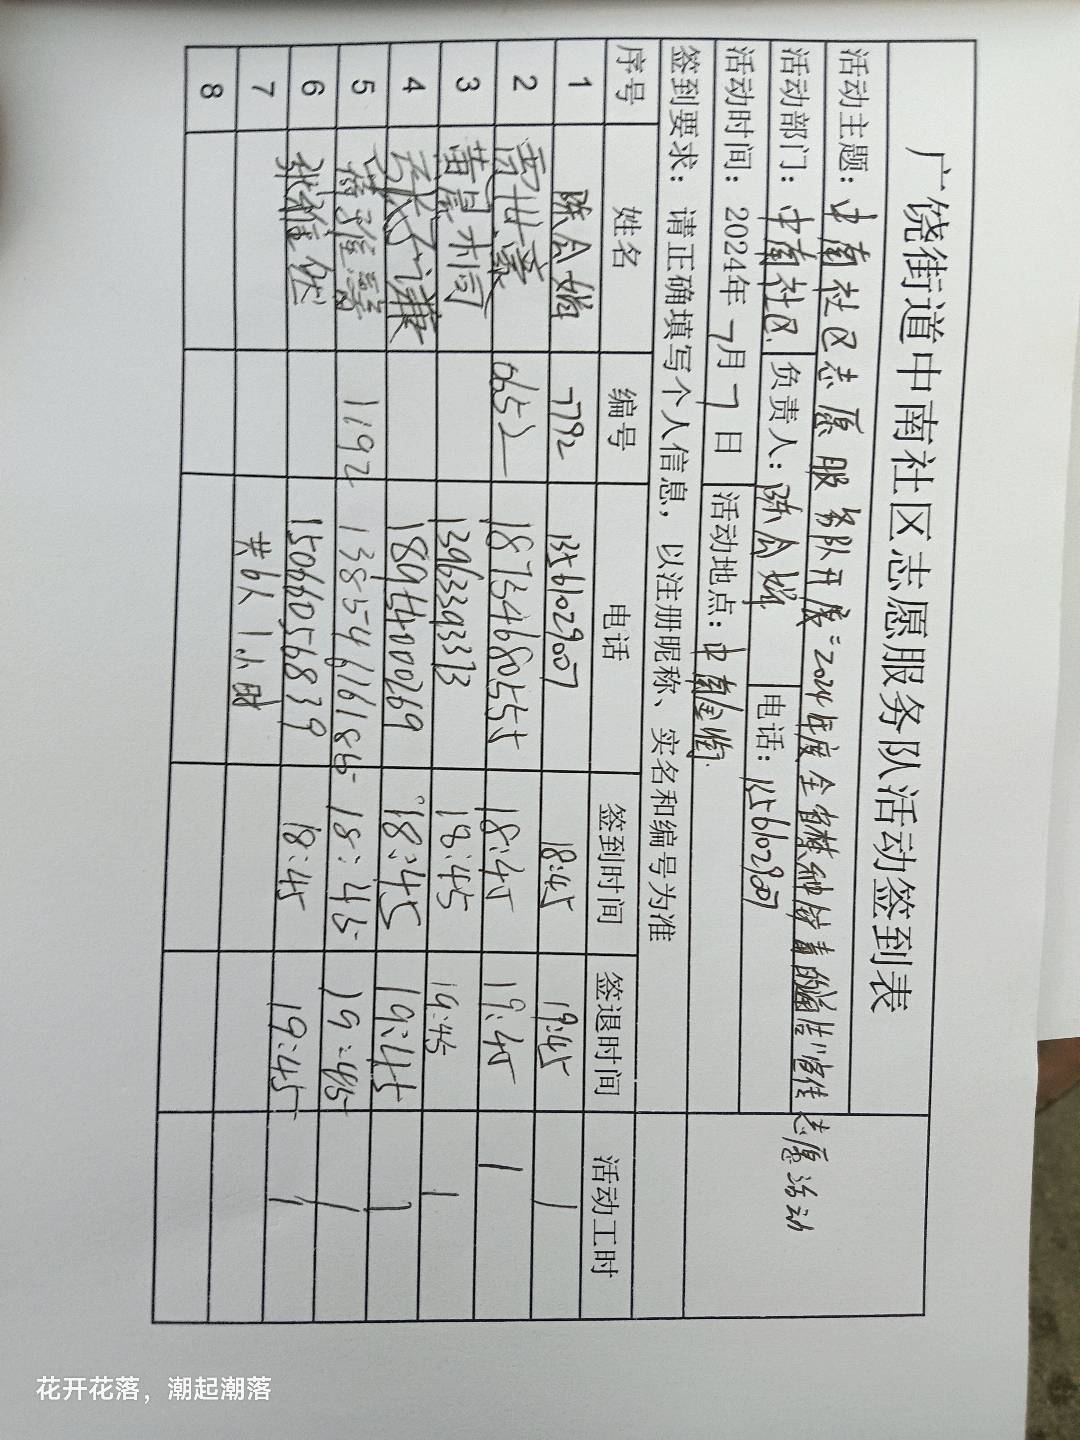 广饶街道中南社区志愿服务队活动签到表
活动主题：中南社区志愿服务队开展"2024年度全省禁种铲毒的通告"宣传志愿活动
活动部门：中南社区 负责人：陈会娟 电话：13561029007
活动时间：2024年7月7日 活动地点：中南金街
签到要求：请正确填写个人信息，以注册昵称、实名和编号为准
序号 姓名 编号 电话 签到时间 签退时间 活动工时
1 陈会娟 7792 13561029007 18:45 19:45 1
2 0652 18734680555 18:45 19:45 1
3 黄昊桐 13963393373 18:45 19:45 1
4 18954000269 18:45 19:45 1
5 1192 13854616186 18:45 19:45 1
6 张雅然 15066056839 18:45 19:45 1
7 共6人1小时
8
花开花落，潮起潮落